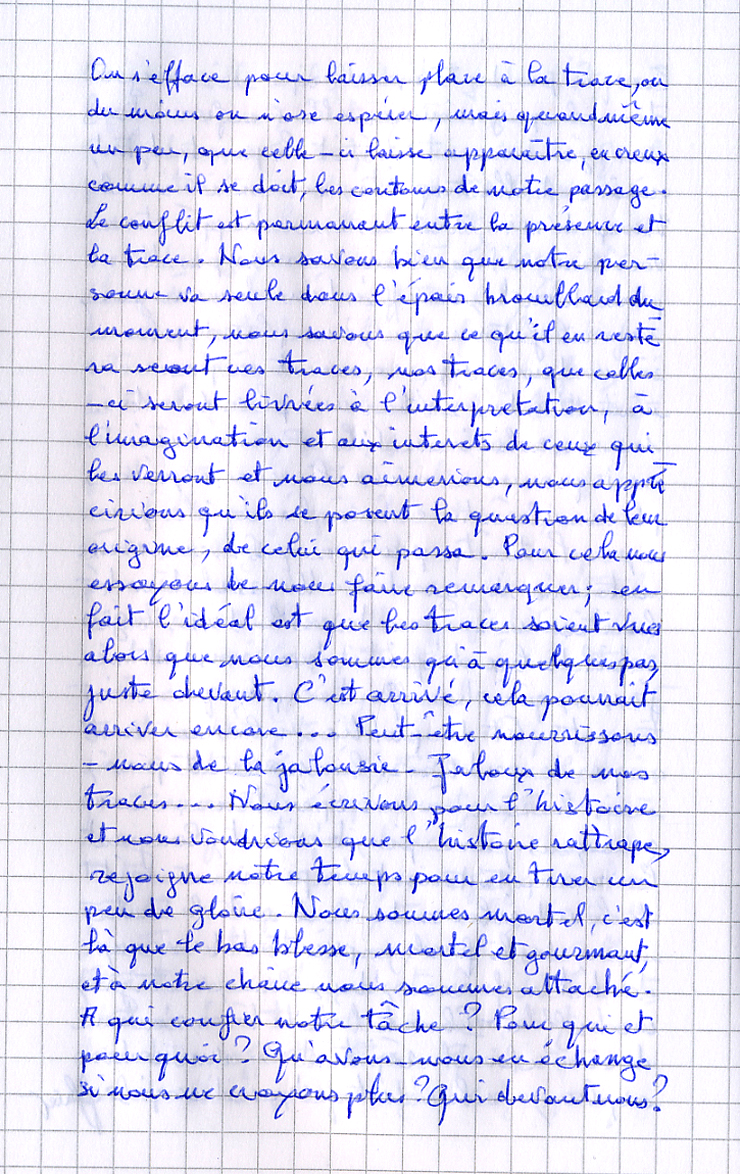 On s'efface pour laisser place à la trace, ou
du moins on n'ose espérer, mais quand même
un peu, que celle-ci laisse apparaître, en creux
comme il se doit, les contours de notre passage.
Le conflit est permanent entre la présence et
la trace. Nous savons bien que notre per-
sonne va seule dans l'épais brouillard du
moment, nous savons que ce qu'il en reste
ra seront ces traces, nos traces, que celles
-ci seront livrées à l'interprétation, à
l'imagination et aux interets de ceux qui
les verront et nous aimerions, nous appré
cirions qu'ils se posent la question de leur
origine, de celui qui passa. Pour cela nous
essayons de nous faire remarquer; en
fait l'idéal est que les traces soient vues
alors que nous sommes qu'à quelques pas,
juste devant. C'est arrivé, cela pourrait
arriver encore... Peut-être nourrissons
-nous de la jalousie. Jaloux de nos
traces... Nous écrivons pour l'histoire
et nous voudrions que l'histoire rattrape,
rejoigne notre temps pour en tirer un
peu de gloire. Nous sommes mortel, c'est
là que le bas blesse, mortel et gourmant,
et à notre chaire nous sommes attaché.
A qui confier notre tâche ? Pour qui et
pourquoi ? Qu'avons-nous en échange
si nous ne croyons plus ? Qui devant nous ?